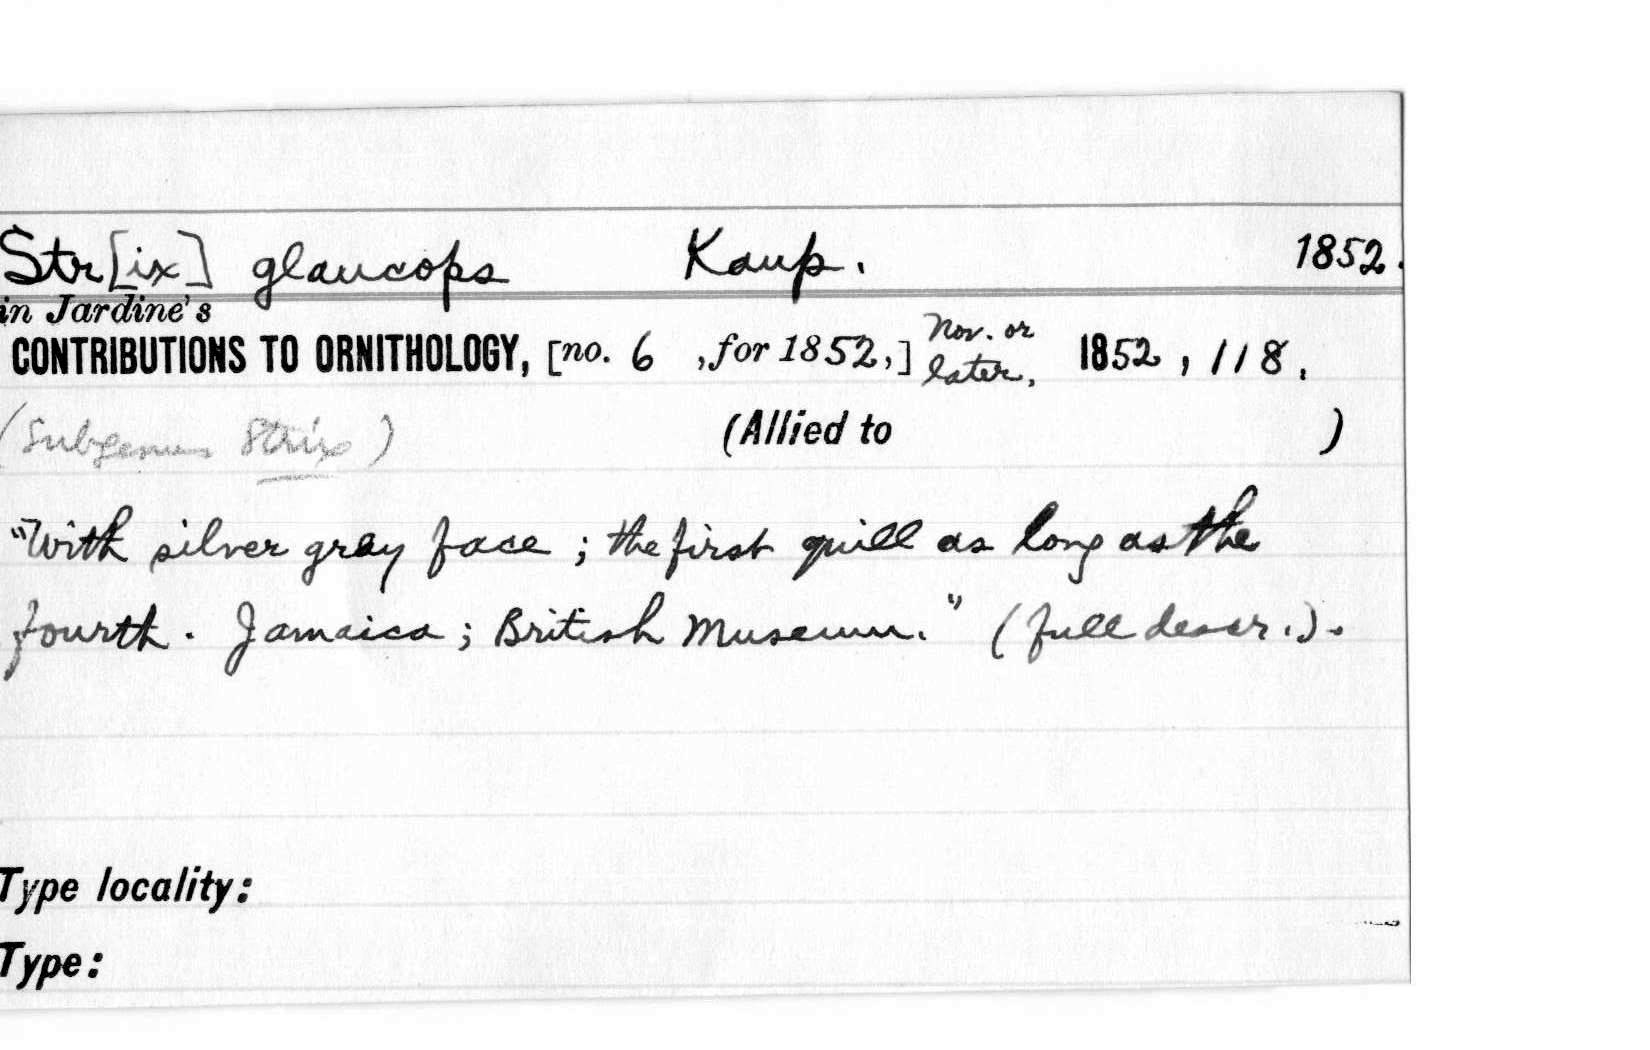 Str[ix] glaucops Kaup. 1852.
in Jardine's
CONTRIBUTIONS TO ORNITHOLOGY, [no. 6 , for 1852,] Nov. or later, 1852, 118.
(Subgenus Strix) (Allied to )
"With silver gray face; the first quill as long as the
fourth. Jamaica; British Museum." (full descr.).
Type locality:
Type: